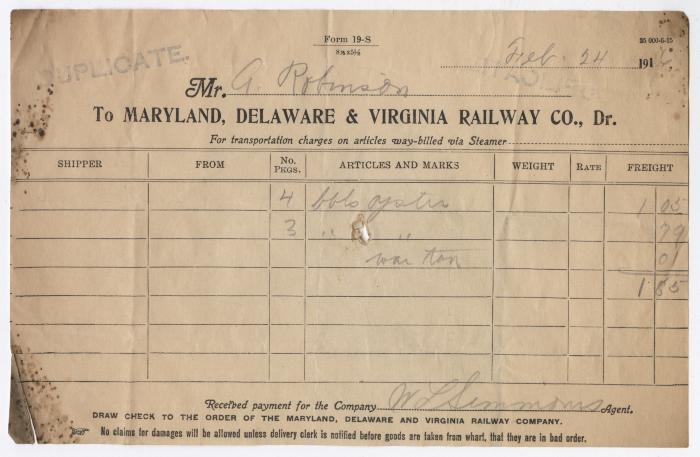 Form 19-S
8½x5½
35 000-6-15
DUPLICATE
Feb. 24 191
Mr. A. Robinson
To MARYLAND, DELAWARE & VIRGINIA RAILWAY CO., Dr.
For transportation charges on articles way-billed via Steamer
SHIPPER FROM No. PKGS. ARTICLES AND MARKS WEIGHT RATE FREIGHT
4 bbls oyster 1 05
3 " " 79
war tax 01
1 85
Received payment for the Company W L Simmons Agent.
DRAW CHECK TO THE ORDER OF THE MARYLAND, DELAWARE AND VIRGINIA RAILWAY COMPANY.
No claims for damages will be allowed unless delivery clerk is notified before goods are taken from wharf, that they are in bad order.